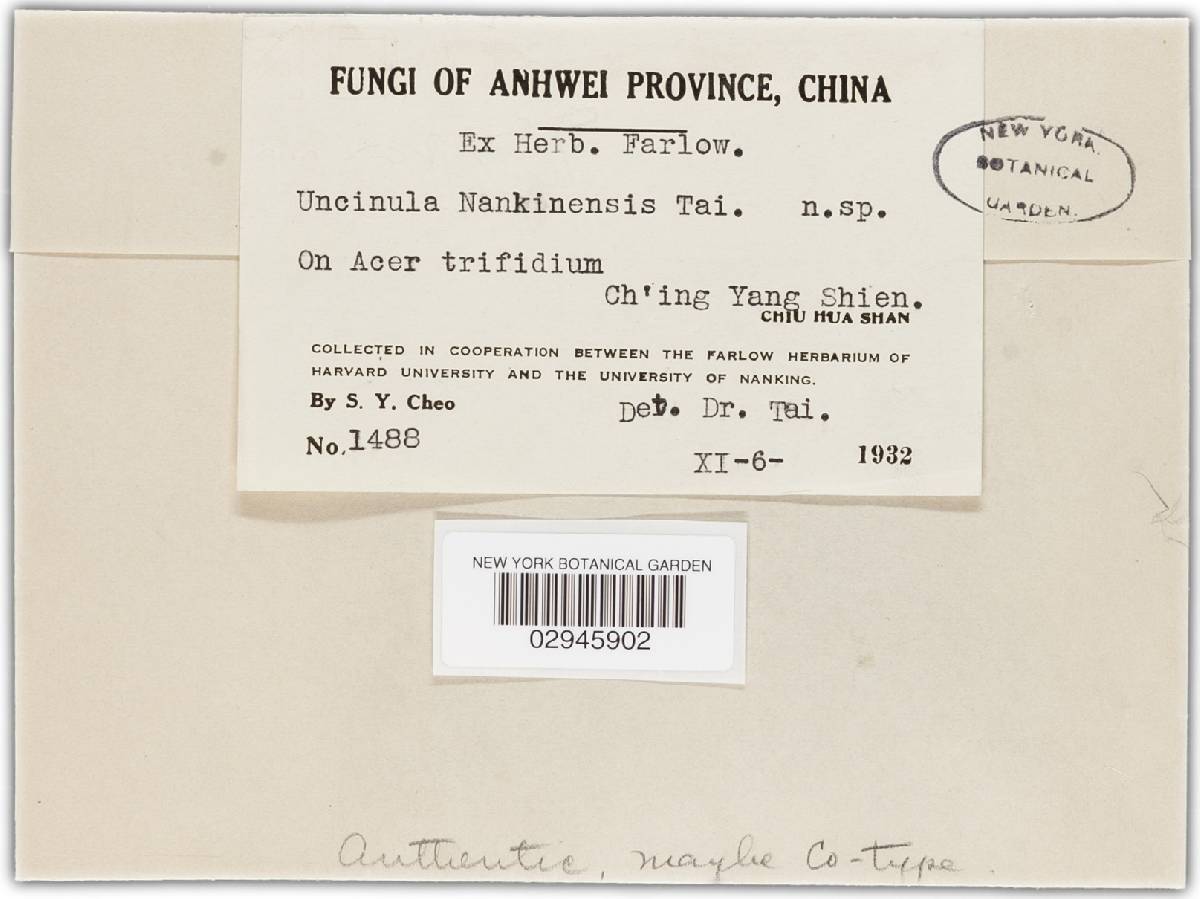 FUNGI OF ANHWEI PROVINCE, CHINA
Ex Herb. Farlow.
Uncinula Nankinensis Tai. n.sp.
On Acer trifidium
Ch'ing Yang Shien.
CHIU HUA SHAN
COLLECTED IN COOPERATION BETWEEN THE FARLOW HERBARIUM OF
HARVARD UNIVERSITY AND THE UNIVERSITY OF NANKING.
By S. Y. Cheo Det. Dr. Tai.
No. 1488
XI-6- 1932
NEW YORK
BOTANICAL
GARDEN.
NEW YORK BOTANICAL GARDEN
02945902
Authentic, maybe Co-type